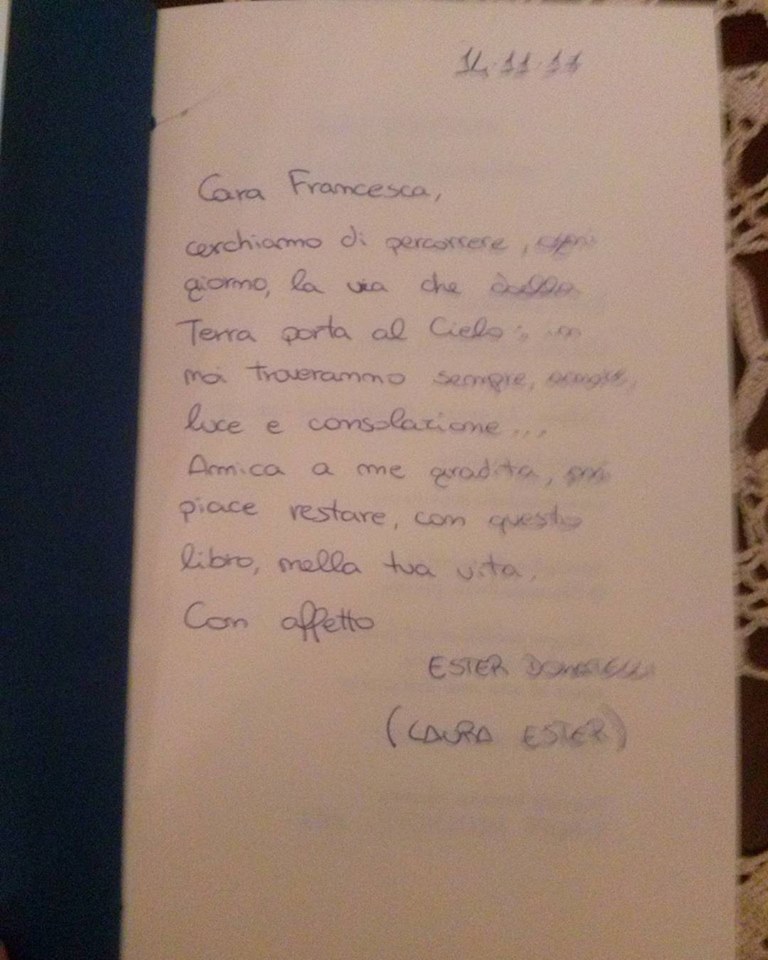 14.11.11
Cara Francesca,
cerchiamo di percorrere, ogni
giorno, la via che dalla
Terra porta al Cielo:
noi troveranno sempre, sempre,
luce e consolazione...
Amica a me gradita, mi
piace restare, con questo
libro, nella tua vita.
Con affetto
ESTER
(LAURA ESTER)